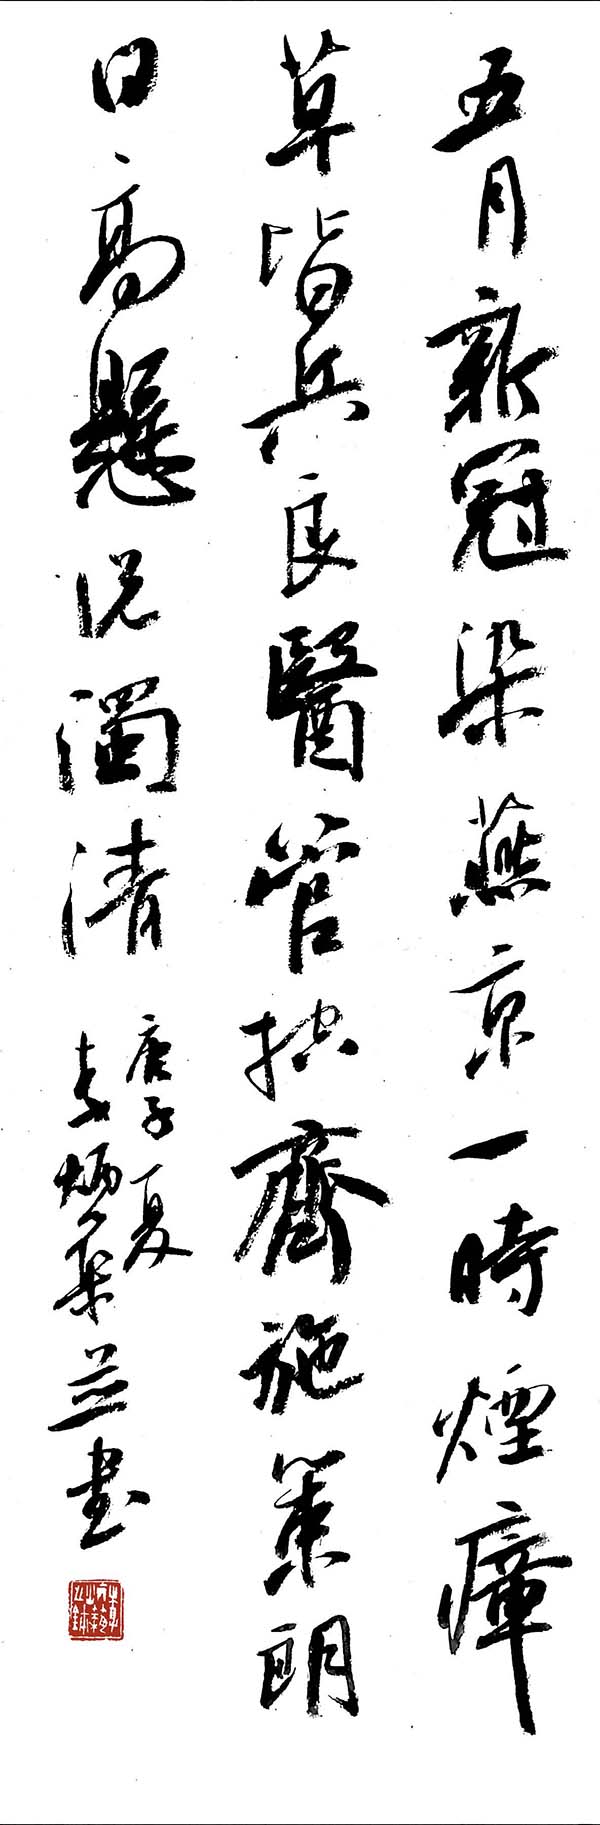 五月新冠染燕京一時煙瘴
草皆兵良醫管控齊施策朗
日高懸説濁清
庚子夏
並書